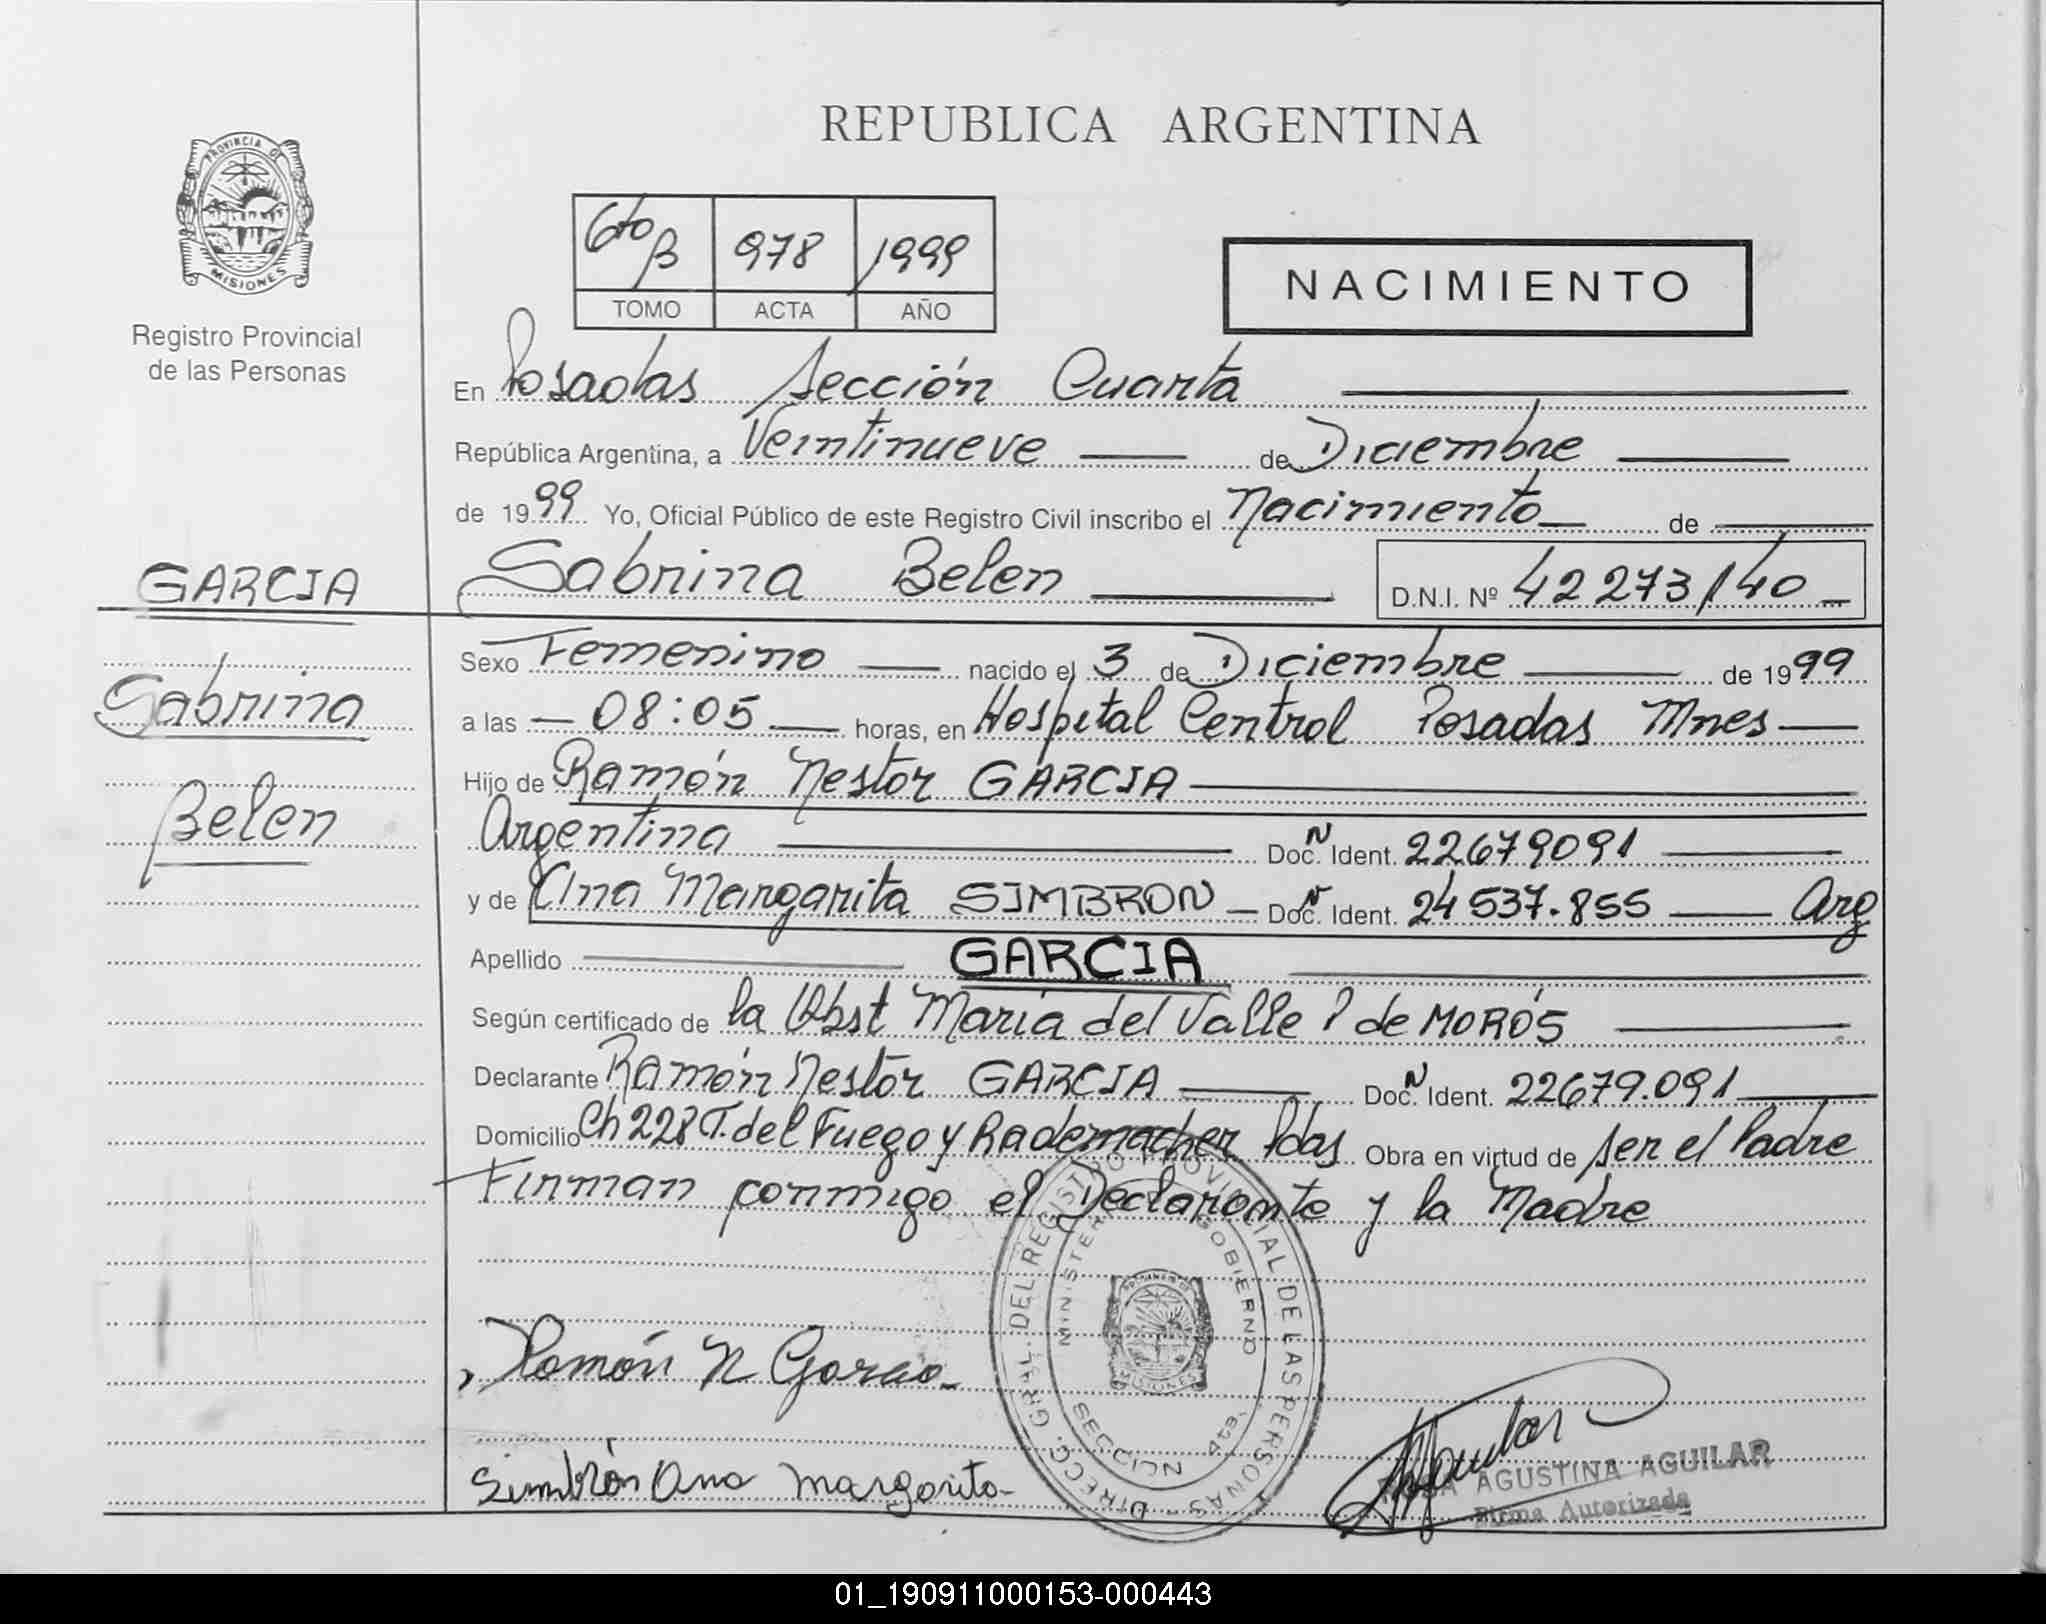 REPUBLICA ARGENTINA
PROVINCIA DE
MISIONES
Registro Provincial
de las Personas
6to B 978 1999
TOMO ACTA AÑO
NACIMIENTO
En Posadas Sección Cuarta
República Argentina, a Veintinueve de Diciembre
de 1999 Yo, Oficial Público de este Registro Civil inscribo el Nacimiento de
Sabrina Belen D.N.I. Nº 42273140
GARCIA
Sabrina
Belen
Sexo Femenino nacido el 3 de Diciembre de 1999
a las 08:05 horas, en Hospital Central Posadas Mnes
Hijo de Ramón Nestor GARCIA
Argentina Doc. N Ident. 22679091
y de Ana Margarita SIMBRON Doc. N Ident. 24537.855 Arg
Apellido GARCIA
Según certificado de la Obst Maria del Valle P de MORÓS
Declarante Ramón Nestor GARCIA Doc. N Ident. 22679.091
Domicilio Ch 228 T. del Fuego y Rademacher Pdas Obra en virtud de ser el Padre
Firman conmigo el Declarante y la Madre
DIRECC. GRAL. DEL REGISTRO PROVINCIAL DE LAS PERSONAS
GOBIERNO
MISIONES
SECCION 4ta.
Ramón N Garcia
Simbrón Ana Margarita
Aguilar
ROSA AGUSTINA AGUILAR
Firma Autorizada
01_190911000153-000443